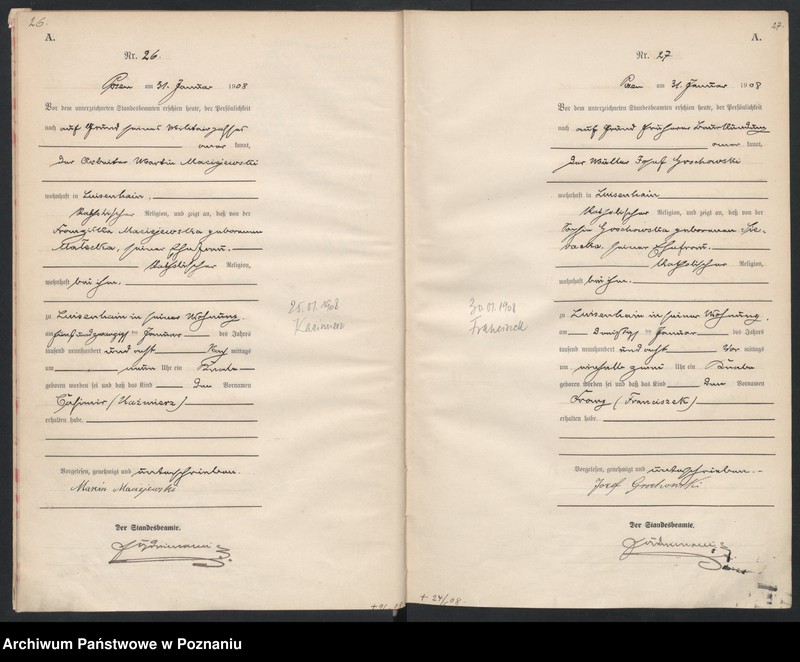 26.
A.
Nr. 26.
Posen am 31. Januar 1908
Vor dem unterzeichneten Standesbeamten erschien heute, der Persönlichkeit
nach auf Grund seines Militairpasses
kannt,
der Arbeiter Martin Maciejewski
wohnhaft in Luisenhain,
katholischer Religion, und zeigt an, daß von der
Maciejewska geborenen
seiner Ehefrau,
katholischer Religion,
wohnhaft bei ihm,
zu Luisenhain in seiner Wohnung,
am fünfundzwanzigsten Januar des Jahres
tausend neunhundert und acht Nach mittags
um neun Uhr ein Knabe
geboren worden sei und daß das Kind den Vornamen
Casimir (Kaźmierz)
erhalten habe.
Vorgelesen, genehmigt und unterschrieben.
Marcin Maciejewski
Der Standesbeamte.
25.01.1908
Kazimierz
27.
A.
Nr. 27
Posen am 31. Januar 1908
Vor dem unterzeichneten Standesbeamten erschien heute, der Persönlichkeit
nach auf Grund früherer Beurkundung
kannt,
der Müller Josef Grochowski
wohnhaft in Luisenhain,
katholischer Religion, und zeigt an, daß von der
Grochowska geborenen
seiner Ehefrau,
katholischer Religion,
wohnhaft bei ihm,
zu Luisenhain in seiner Wohnung,
am dreißigsten Januar des Jahres
tausend neunhundert und acht Vor mittags
um Uhr ein Knabe
geboren worden sei und daß das Kind den Vornamen
Franz (Franciszek)
erhalten habe.
Vorgelesen, genehmigt und unterschrieben.
Jozef Grochowski
Der Standesbeamte.
30.01.1908
Franciszek
Archiwum Państwowe w Poznaniu